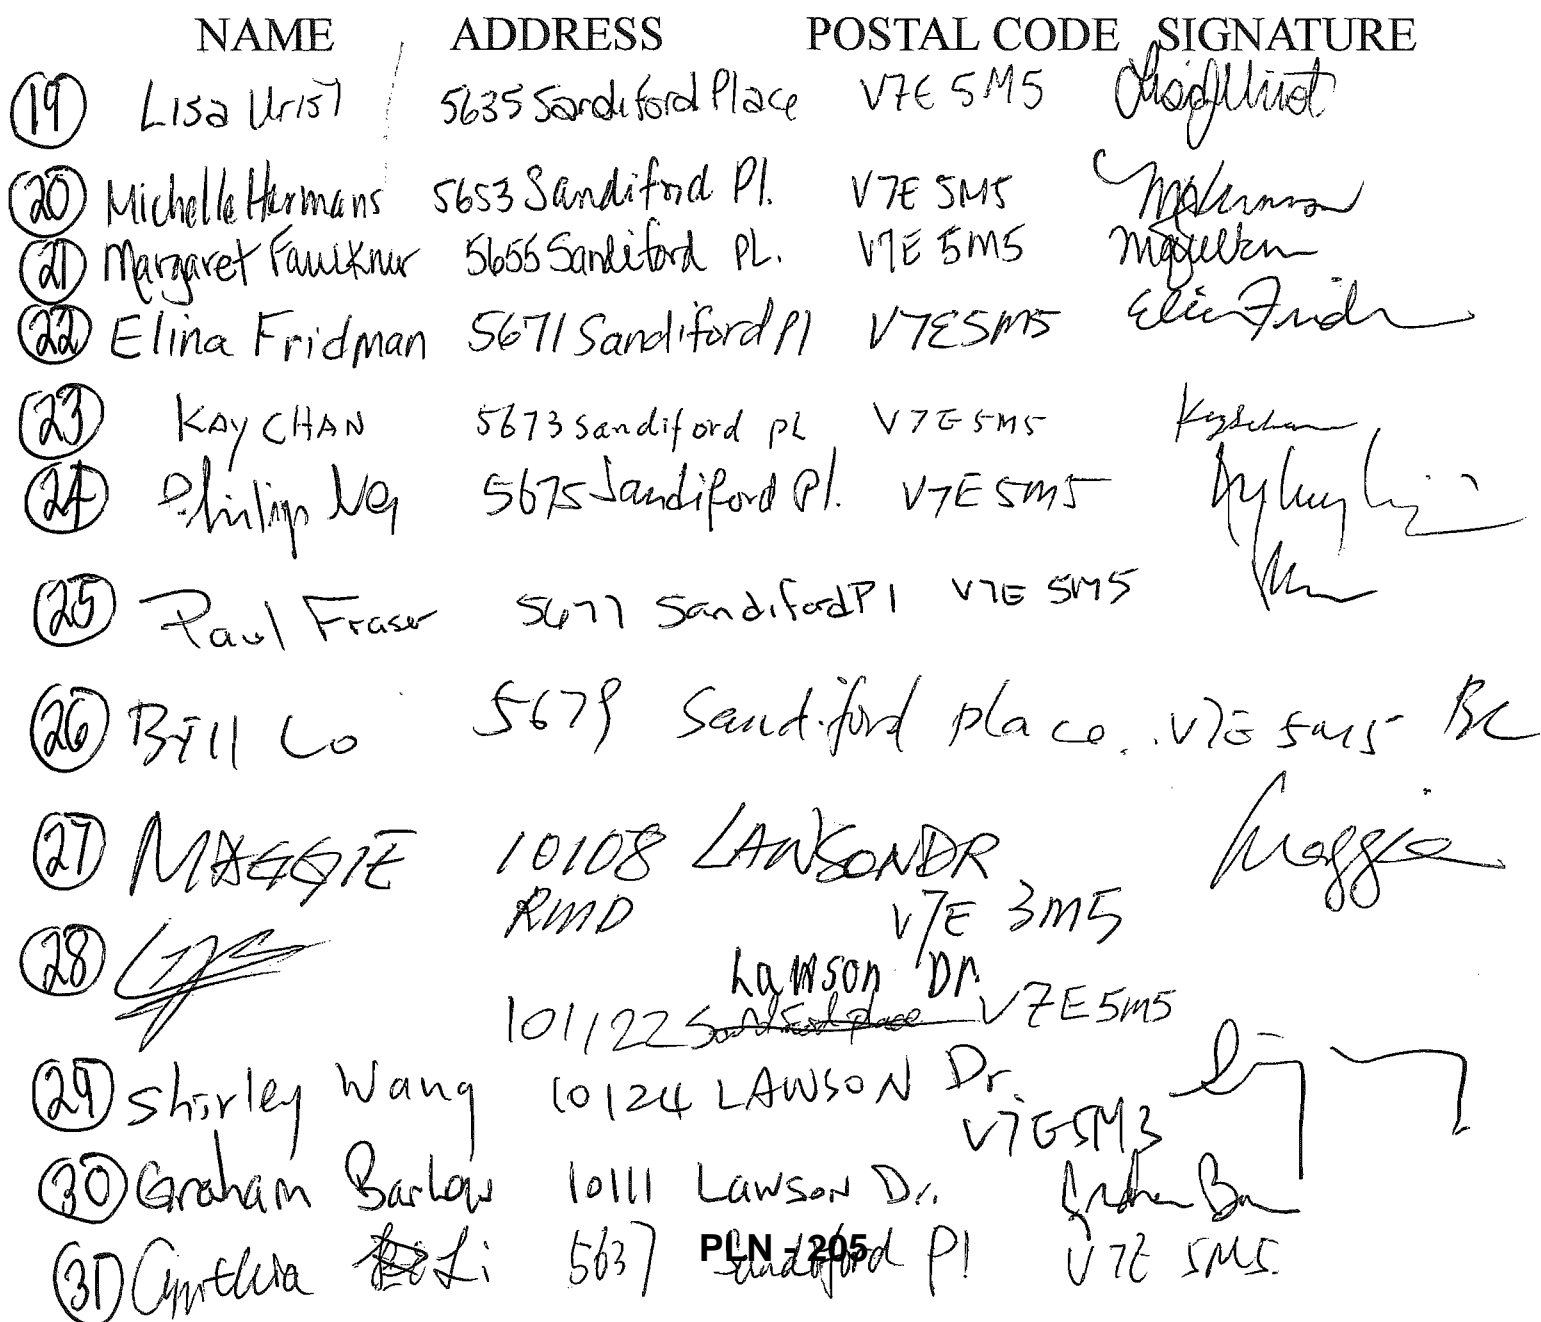 NAME ADDRESS POSTAL CODE SIGNATURE
19 Lisa Urist 5635 Sandiford Place V7E 5M5
20 Michelle Hermans 5653 Sandiford Pl. V7E 5M5
21 Margaret Faulkner 5655 Sandiford PL. V7E 5M5
22 Elina Fridman 5671 Sandiford Pl V7E5M5
23 KAY CHAN 5673 Sandiford PL V7E5M5
24 Philip Ng 5675 Sandiford Pl. V7E 5M5
25 Paul Fraser 5677 Sandiford Pl V7E 5M5
26 Bill Lo 5679 Sandiford place. V7E 5M5 BC
27 MAGGIE 10108 LAWSON DR Maggie
RMD V7E 3M5
28
Lawson Dr.
101122 Sandiford place V7E5M5
29 Shirley Wang 10124 LAWSON Dr.
V7E5M3
30 Graham Barlow 10111 LAWSON Dr.
31 Cynthia Li 5637 Sandiford Pl V7E 5M5.
PLN - 205